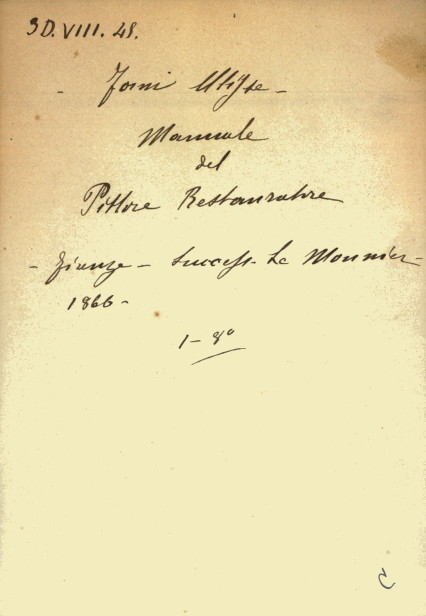 3D. VIII. 48.
- Forni Ulisse -
Manuale
del
Pittore Restauratore
- Firenze - Success. Le Monnier -
1866 -
1 - 8º
C